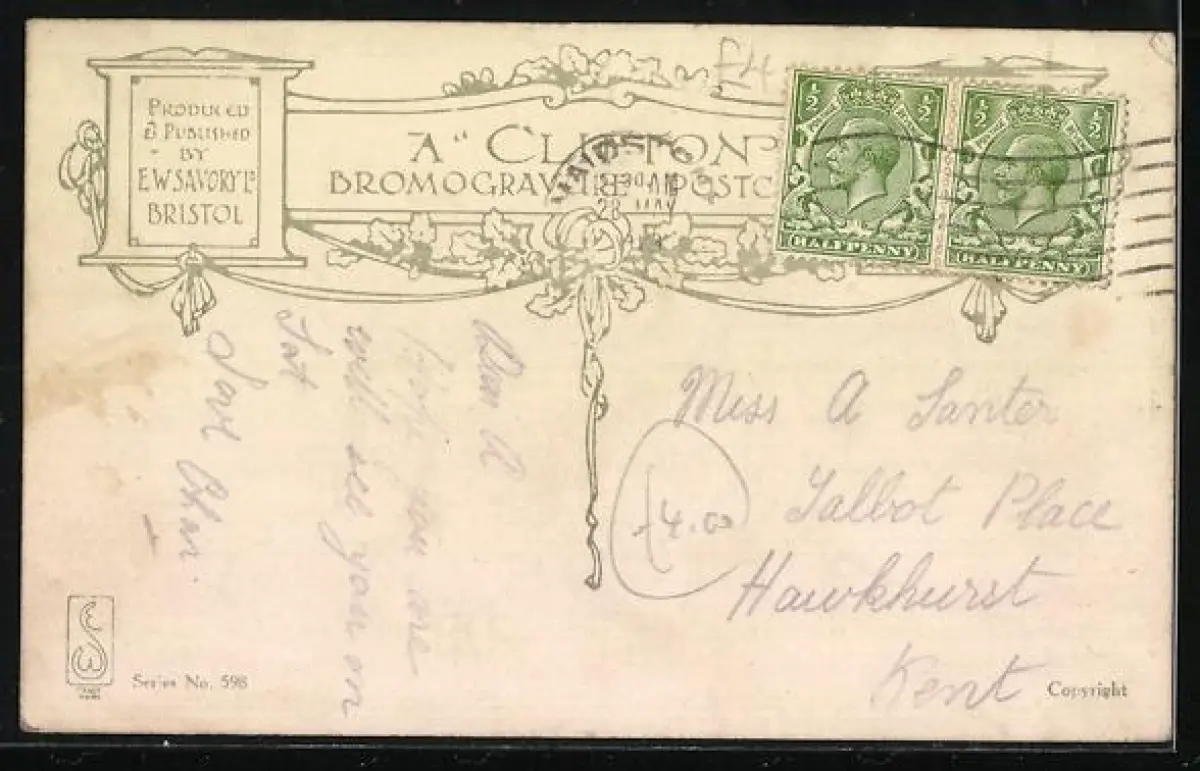 PRODUCED
& PUBLISHED
BY
E.W. SAVORY Ld
BRISTOL
A "CLIFTON"
BROMOGRAVURE POSTC
£4
½ ½
HALFPENNY
½ ½
HALFPENNY
Dear A
hope you are
well see you on
Sat
Love
£4.00
Miss A Santer
Talbot Place
Hawkhurst
Kent
Series No. 598
Copyright